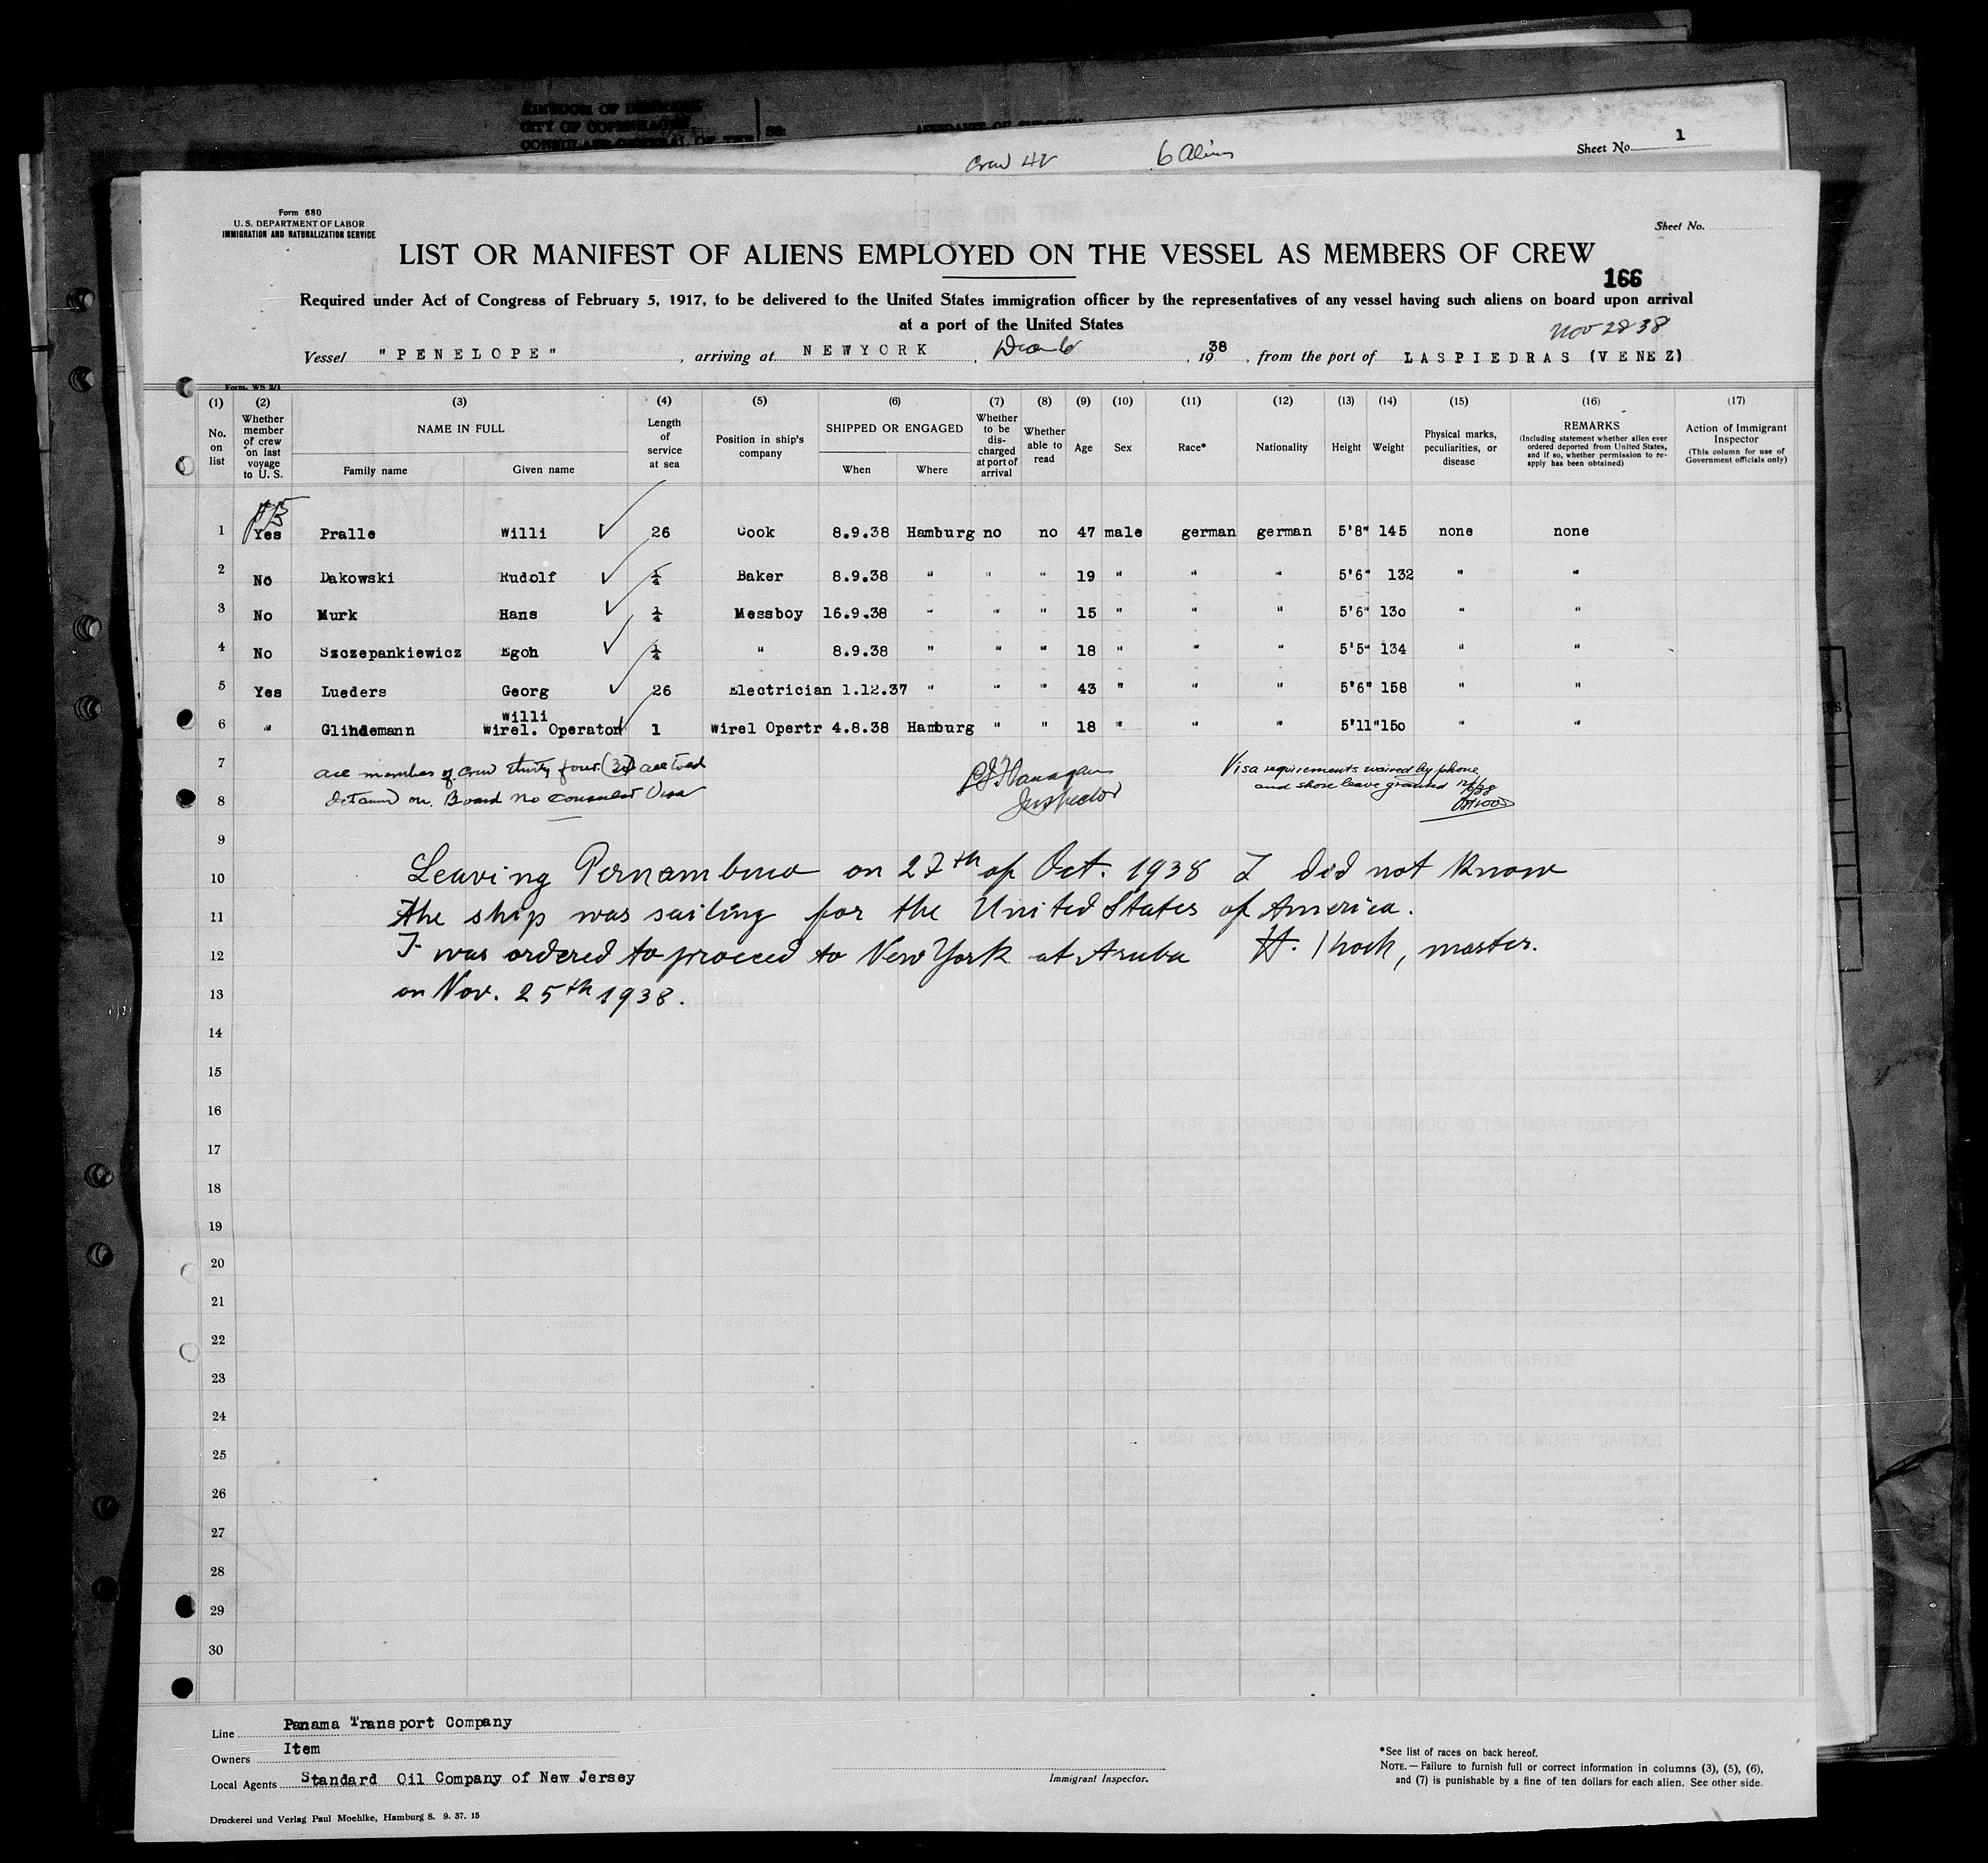 KINGDOM OF DENMARK
CITY OF COPENHAGEN
CONSULATE GENERAL OF THE SS:
AFFIDAVIT OF SURGEON
6 Aliens
Sheet No. 1
Form 680
U. S. DEPARTMENT OF LABOR
IMMIGRATION AND NATURALIZATION SERVICE
Sheet No.
LIST OR MANIFEST OF ALIENS EMPLOYED ON THE VESSEL AS MEMBERS OF CREW
166
Required under Act of Congress of February 5, 1917, to be delivered to the United States immigration officer by the representatives of any vessel having such aliens on board upon arrival
at a port of the United States
Nov 28 38
Vessel "PENELOPE", arriving at NEWYORK, 1938, from the port of LASPIEDRAS (VENEZ)
Form. WS 2/1
(1) (2) (3) (4) (5) (6) (7) (8) (9) (10) (11) (12) (13) (14) (15) (16) (17)
No. on list
Whether member of crew on last voyage to U. S.
NAME IN FULL
Family name Given name
Length of service at sea
Position in ship's company
SHIPPED OR ENGAGED
When Where
Whether to be discharged at port of arrival
Whether able to read
Age
Sex
Race*
Nationality
Height
Weight
Physical marks, peculiarities, or disease
REMARKS
(Including statement whether alien ever ordered deported from United States, and if so, whether permission to re-apply has been obtained)
Action of Immigrant Inspector
(This column for use of Government officials only)
1 Yes Pralle Willi 26 Cook 8.9.38 Hamburg no no 47 male german german 5'8" 145 none none
2 No Dakowski Rudolf ¼ Baker 8.9.38 " " " 19 " " " 5'6" 132 " "
3 No Murk Hans ¼ Messboy 16.9.38 " " " 15 " " " 5'6" 130 " "
4 No Szczepankiewicz Egon ¼ " 8.9.38 " " " 18 " " " 5'5" 134 " "
5 Yes Lueders Georg 26 Electrician 1.12.37 " " " 43 " " " 5'6" 158 " "
6 " Glindemann Willi Wirel. Operator 1 Wirel Opertr 4.8.38 Hamburg " " 18 " " " 5'11" 150 " "
7 all members of crew thirty four (34) all told
8 detained on Board no Consular Visa
Inspector
Visa requirements waived by phone
and shore leave granted
9
10 Leaving Pernambuco on 27th of Oct. 1938 I did not know
11 the ship was sailing for the United States of America.
12 I was ordered to proceed to New York at Aruba H. Khoch, master.
13 on Nov. 25th 1938.
14
15
16
17
18
19
20
21
22
23
24
25
26
27
28
29
30
Line Panama Transport Company
Owners Item
Local Agents Standard Oil Company of New Jersey
Immigrant Inspector.
*See list of races on back hereof.
NOTE.—Failure to furnish full or correct information in columns (3), (5), (6),
and (7) is punishable by a fine of ten dollars for each alien. See other side.
Druckerei und Verlag Paul Moehlke, Hamburg 8. 9. 37. 15